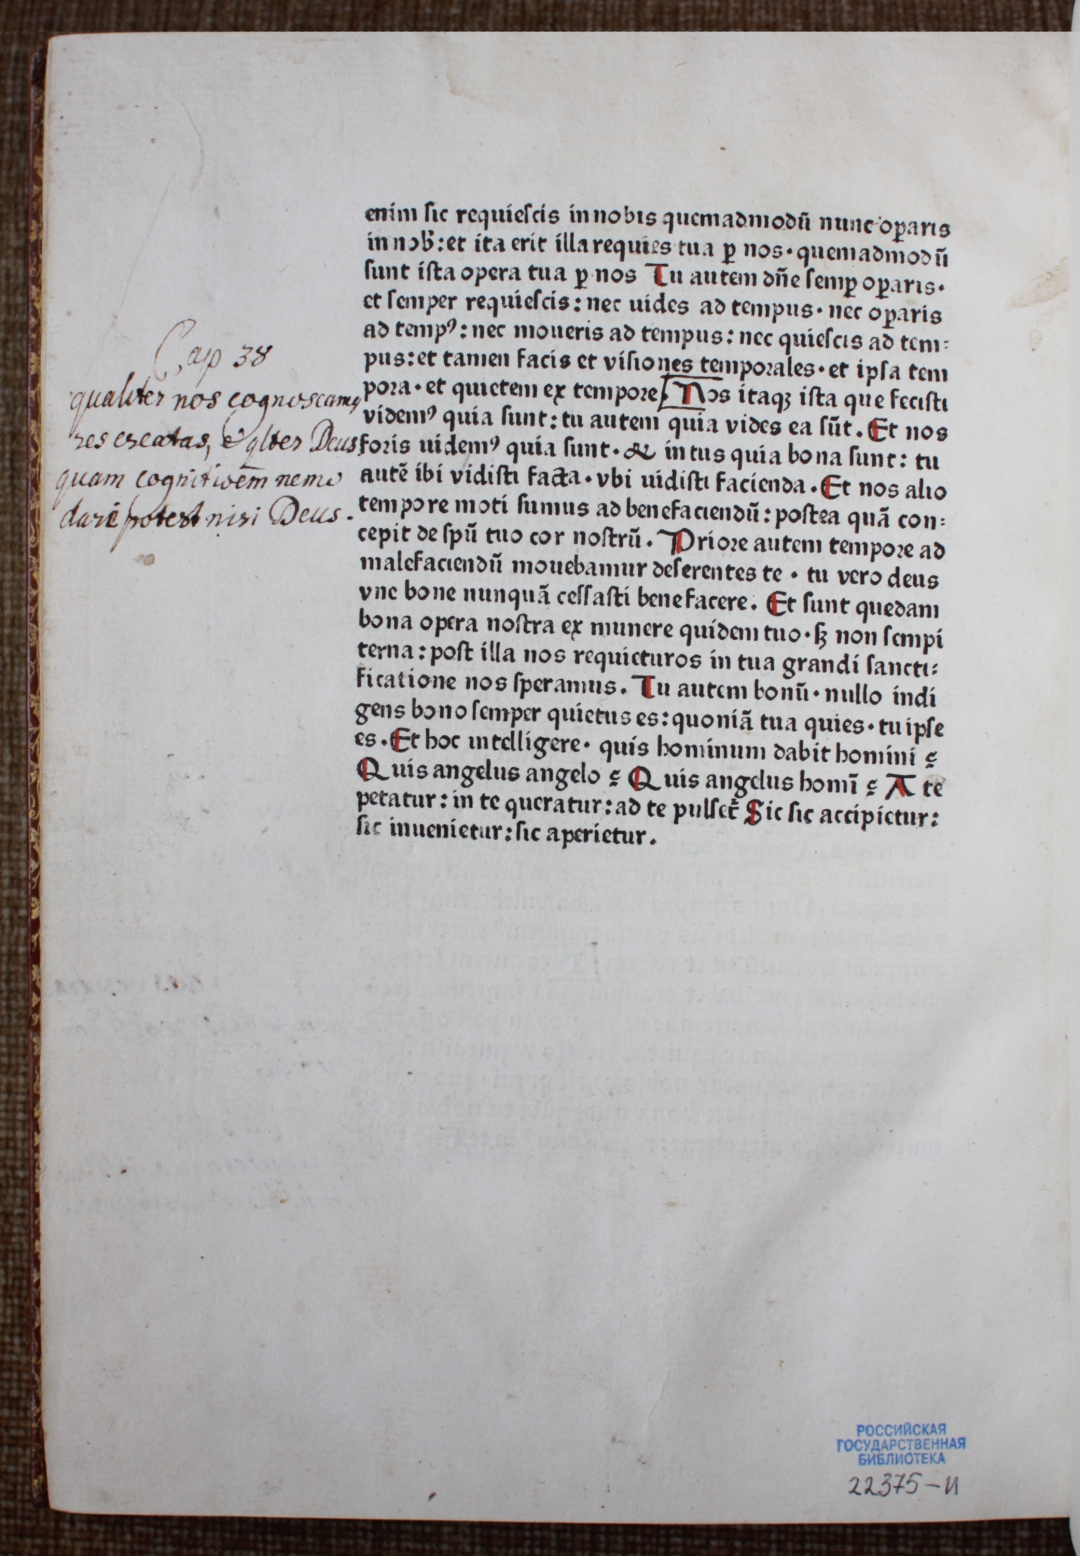 enim sic requiescis in nobis quemadmodū nunc oꝑaris
in nob̄: et ita erit illa requies tua ꝑ nos · quemadmodū
sunt ista opera tua ꝑ nos Tu autem dn̄e semꝑ oꝑaris ·
et semper requiescis: nec uides ad tempus · nec oꝑaris
ad tempꝰ: nec moueris ad tempus: nec quiescis ad tem:
pus: et tamen facis et visiones temporales · et ipsa tem
pora · et quietem ex tempore. Nos itaqꝫ ista que fecisti
videmꝰ quia sunt: tu autem quia vides ea sūt. Et nos
foris uidemꝰ quia sunt · & intus quia bona sunt: tu
autē ibi vidisti facta · vbi uidisti facienda · Et nos alio
tempore moti sumus ad benefaciendū: postea quā con:
cepit de spū tuo cor nostrū. Priore autem tempore ad
malefaciendū mouebamur deserentes te · tu vero deus
vne bone nunquā cessasti benefacere. Et sunt quedam
bona opera nostra ex munere quidem tuo · sꝫ non sempi
terna: post illa nos requieturos in tua grandi sancti:
ficatione nos speramus. Tu autem bonū · nullo indi
gens bono semper quietus es: quoniā tua quies · tu ipse
es. Et hoc intelligere · quis hominum dabit homini ?
Quis angelus angelo ? Quis angelus homī ? A te
petatur: in te queratur: ad te pulset̄ Sic sic accipietur:
sic inuenietur: sic aperietur.
Cap 38
qualiter nos cognoscamꝰ
res creatas, & qlter Deus
quam cognitioēm nemo
dare potest nisi Deus.
РОССИЙСКАЯ
ГОСУДАРСТВЕННАЯ
БИБЛИОТЕКА
22375-И